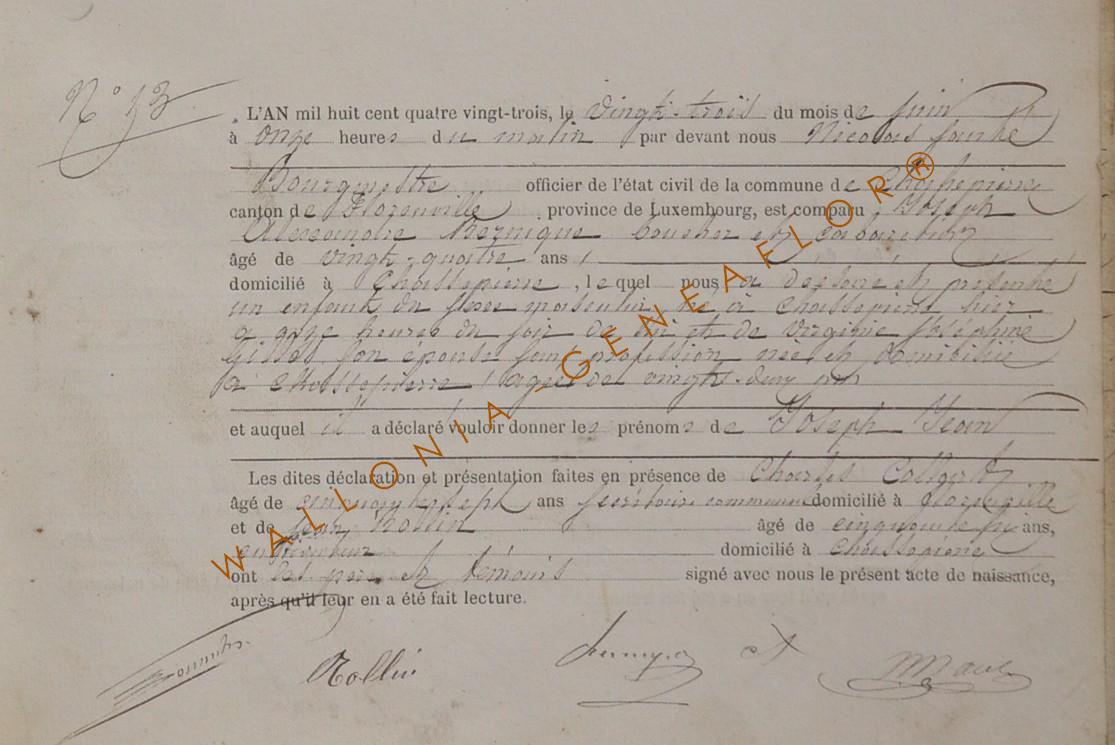 N° 13
L'AN mil huit cent quatre vingt-trois, le vingt-trois du mois de Juin
à onze heures du matin par devant nous Nicolas
Bourgmestre officier de l'état civil de la commune de Chassepierre
canton de Florenville, province de Luxembourg, est comparu Joseph
Alexandre boucher et cabaretier
âgé de vingt-quatre ans,
domicilié à Chassepierre, lequel nous a déclaré et présenté
un enfant du sexe masculin né à Chassepierre hier
à onze heures du soir de lui et de Virginie Joséphine
son épouse sans profession née et domiciliée
à Chassepierre, agée de vingt-deux ans
et auquel il a déclaré vouloir donner les prénoms de Joseph Jean
Les dites déclaration et présentation faites en présence de Charles
âgé de cinquante sept ans secrétaire communal domicilié à Florenville
et de Jean Rollin âgé de cinquante ans,
domicilié à Chassepierre
ont les père et témoins signé avec nous le présent acte de naissance,
après qu'il leur en a été fait lecture.
Rollin
WALLONIA - GENEAFLOR®